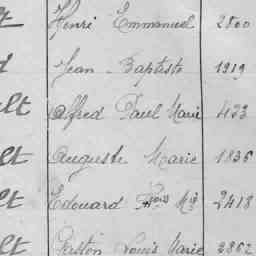 Henri Emmanuel 2800
Jean Baptiste 1919
Alfred Paul Marie 433
lt Auguste Marie 1836
lt Edouard Fçois Mie 2418
lt Gaston Louis Marie 2862